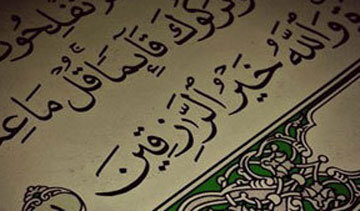 تُفْلِحُونَ
تَرَكُوكَ قَآئِمًا قُلْ مَا
وَٱللَّهُ خَيْرُ ٱلرَّٰزِقِينَ